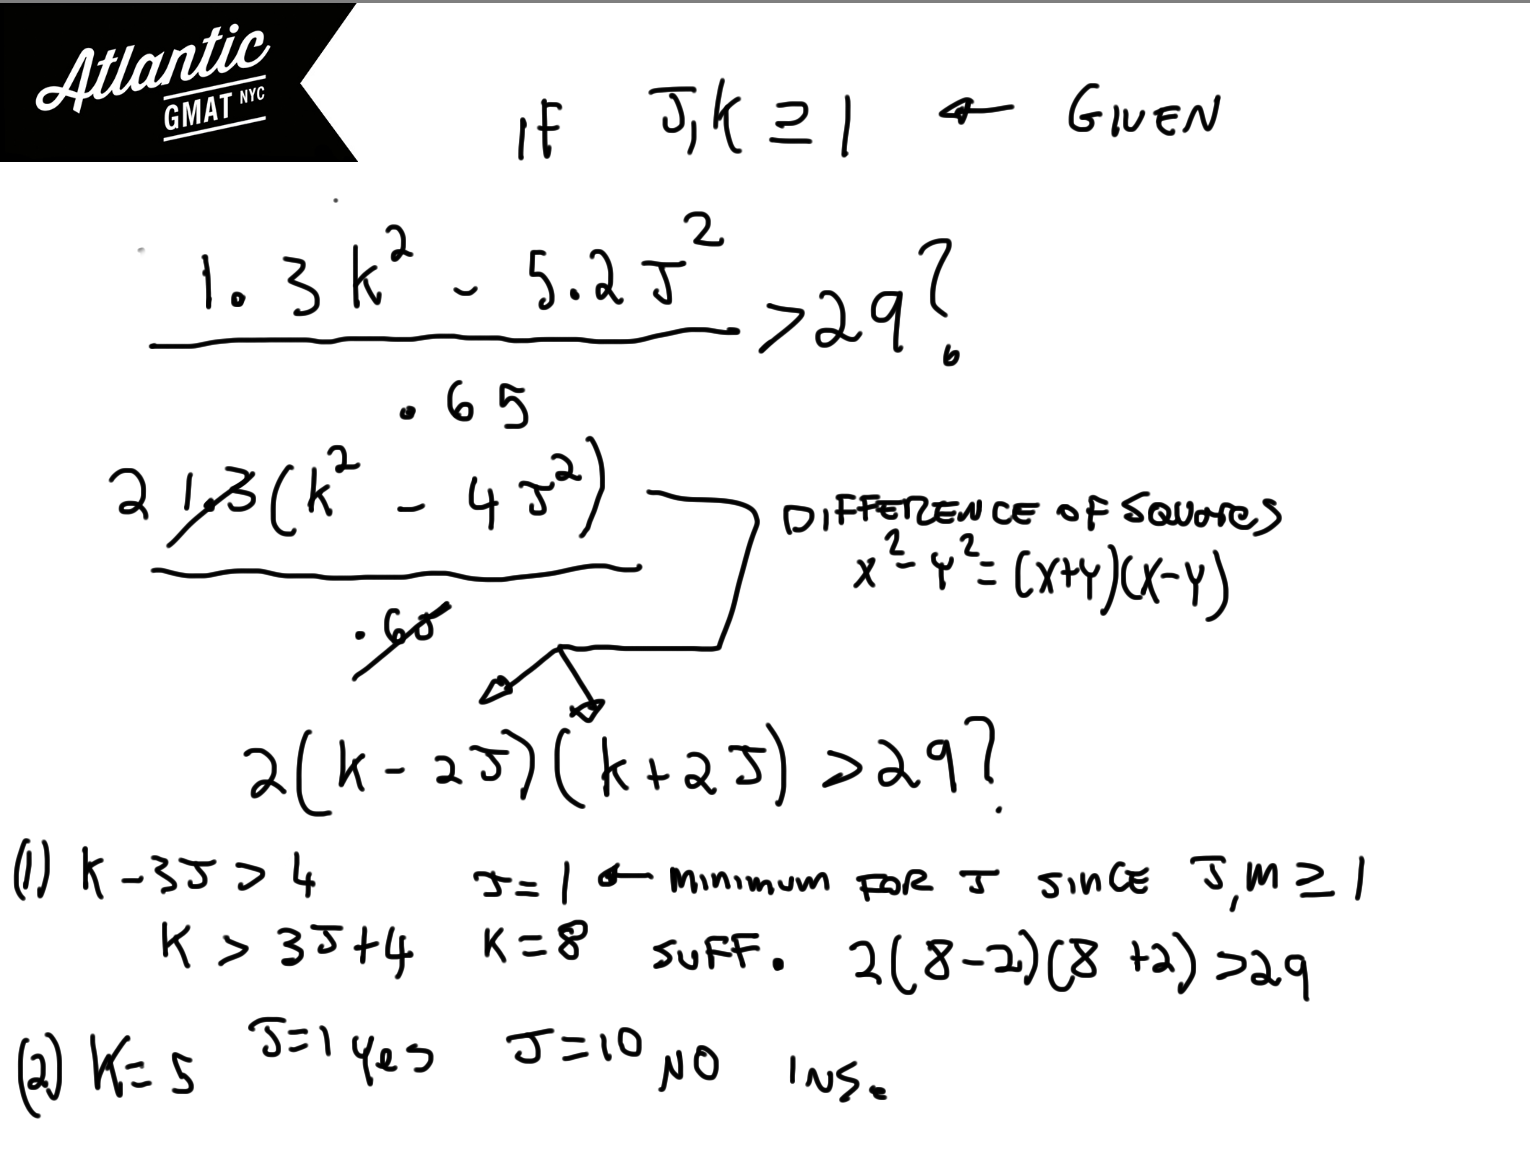 Atlantic
GMAT NYC
IF J,K ≥ 1 ← GIVEN
1.3K² - 5.2J²
> 29?
.65
2 1.3(K² - 4J²)
.65
DIFFERENCE OF SQUARES
X² - Y² = (X+Y)(X-Y)
2(K - 2J)(K + 2J) > 29?
(1) K - 3J > 4 J = 1 ← MINIMUM FOR J SINCE J,M ≥ 1
K > 3J + 4 K = 8 SUFF. 2(8-2)(8+2) > 29
(2) K = 5 J = 1 YES J = 10 NO INS.